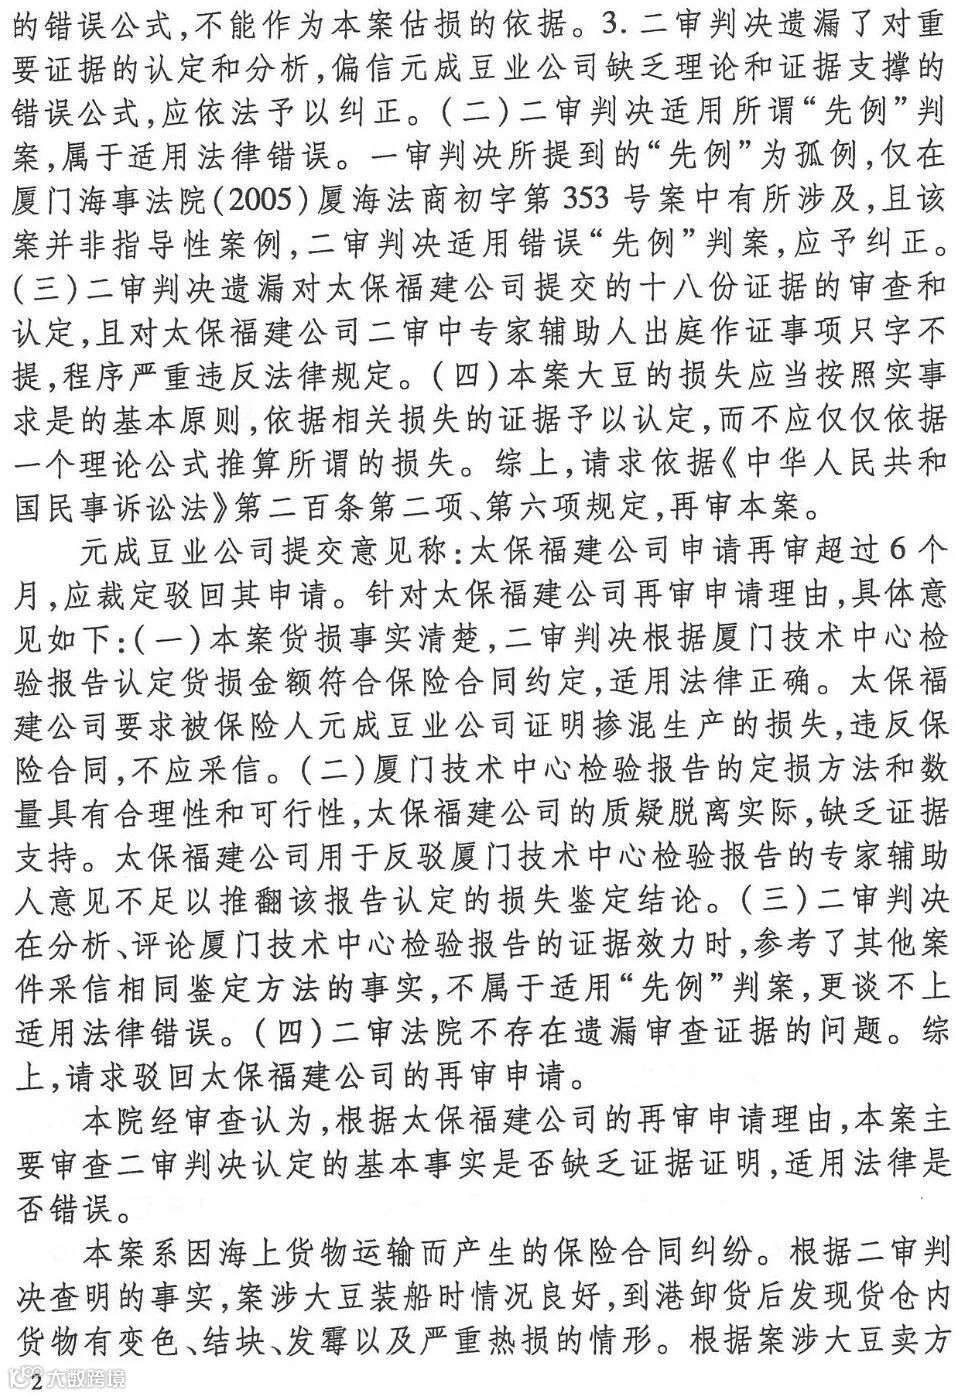 的错误公式,不能作为本案估损的依据。3. 二审判决遗漏了对重
要证据的认定和分析,偏信元成豆业公司缺乏理论和证据支撑的
错误公式,应依法予以纠正。(二)二审判决适用所谓“先例”判
案,属于适用法律错误。一审判决所提到的“先例”为孤例,仅在
厦门海事法院(2005)厦海法商初字第 353 号案中有所涉及,且该
案并非指导性案例,二审判决适用错误“先例”判案,应予纠正。
(三)二审判决遗漏对太保福建公司提交的十八份证据的审查和
认定,且对太保福建公司二审中专家辅助人出庭作证事项只字不
提,程序严重违反法律规定。(四)本案大豆的损失应当按照实事
求是的基本原则,依据相关损失的证据予以认定,而不应仅仅依据
一个理论公式推算所谓的损失。综上,请求依据《中华人民共和
国民事诉讼法》第二百条第二项、第六项规定,再审本案。
元成豆业公司提交意见称:太保福建公司申请再审超过 6 个
月,应裁定驳回其申请。针对太保福建公司再审申请理由,具体意
见如下:(一)本案货损事实清楚,二审判决根据厦门技术中心检
验报告认定货损金额符合保险合同约定,适用法律正确。太保福
建公司要求被保险人元成豆业公司证明掺混生产的损失,违反保
险合同,不应采信。(二)厦门技术中心检验报告的定损方法和数
量具有合理性和可行性,太保福建公司的质疑脱离实际,缺乏证据
支持。太保福建公司用于反驳厦门技术中心检验报告的专家辅助
人意见不足以推翻该报告认定的损失鉴定结论。(三)二审判决
在分析、评论厦门技术中心检验报告的证据效力时,参考了其他案
件采信相同鉴定方法的事实,不属于适用“先例”判案,更谈不上
适用法律错误。(四)二审法院不存在遗漏审查证据的问题。综
上,请求驳回太保福建公司的再审申请。
本院经审查认为,根据太保福建公司的再审申请理由,本案主
要审查二审判决认定的基本事实是否缺乏证据证明,适用法律是
否错误。
本案系因海上货物运输而产生的保险合同纠纷。根据二审判
决查明的事实,案涉大豆装船时情况良好,到港卸货后发现货仓内
货物有变色、结块、发霉以及严重热损的情形。根据案涉大豆卖方
2
大数跨境